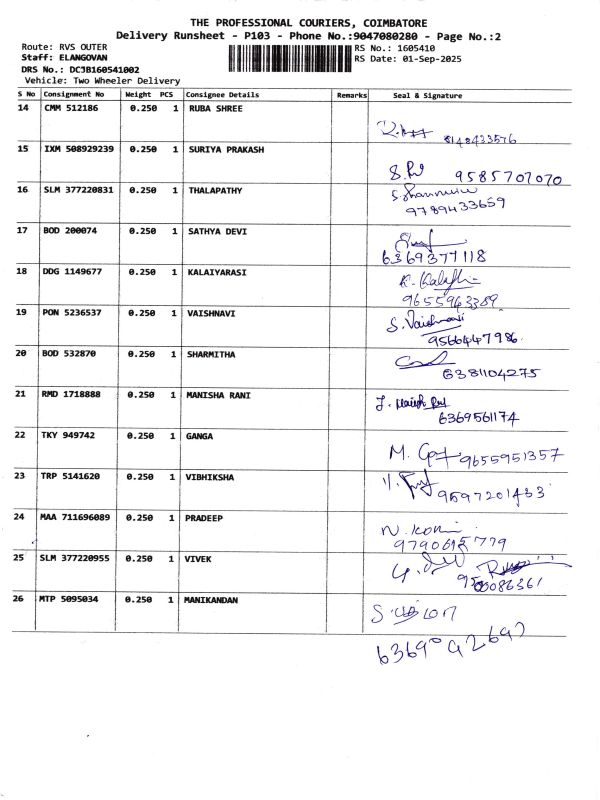 THE PROFESSIONAL COURIERS, COIMBATORE
Delivery Runsheet - P103 - Phone No.:9047080280 - Page No.:2
Route: RVS OUTER
RS No.: 1605410
Staff: ELANGOVAN
RS Date: 01-Sep-2025
DRS No.: DCJB160541002
Vehicle: Two Wheeler Delivery
S No Consignment No Weight PCS Consignee Details Remarks Seal & Signature
14 CMM 512186 0.250 1 RUBA SHREE
8148433576
15 IXM 508929239 0.250 1 SURIYA PRAKASH
9585707070
16 SLM 377220831 0.250 1 THALAPATHY
9789433659
17 BOD 200074 0.250 1 SATHYA DEVI
6369377118
18 DDG 1149677 0.250 1 KALAIYARASI
9655943389
19 PON 5236537 0.250 1 VAISHNAVI
S. Vaishnavi
9566447986
20 BOD 532870 0.250 1 SHARMITHA
6381104275
21 RMD 1718888 0.250 1 MANISHA RANI
6369561174
22 TKY 949742 0.250 1 GANGA
9655951357
23 TRP 5141620 0.250 1 VIBHIKSHA
9597201433
24 MAA 711696089 0.250 1 PRADEEP
25 SLM 377220955 0.250 1 VIVEK
26 MTP 5095034 0.250 1 MANIKANDAN